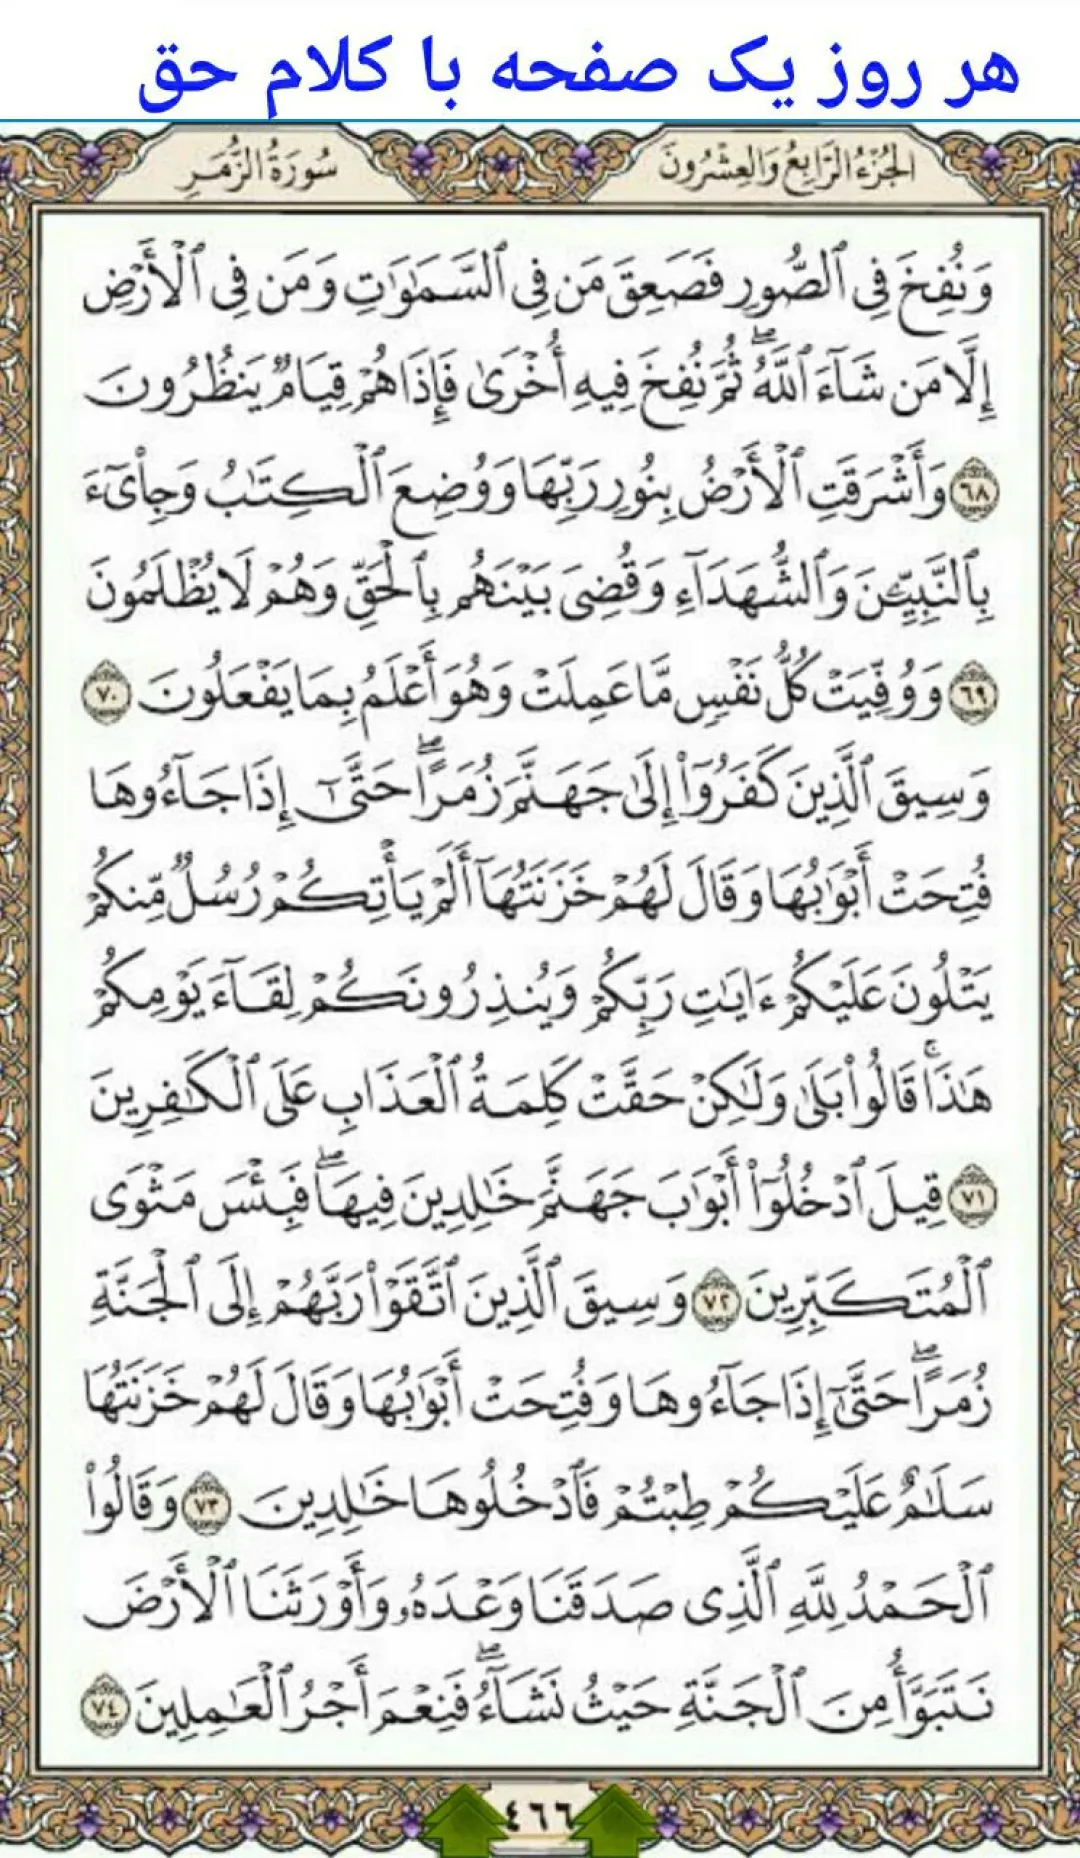 هر روز یک صفحه با کلام حق
الجُزْءُ الرَّابِعُ وَالعِشْرُونَ
سُورَةُ الزُّمَرِ
وَنُفِخَ فِي ٱلصُّورِ فَصَعِقَ مَن فِي ٱلسَّمَٰوَٰتِ وَمَن فِي ٱلْأَرْضِ
إِلَّا مَن شَآءَ ٱللَّهُۖ ثُمَّ نُفِخَ فِيهِ أُخْرَىٰ فَإِذَا هُمْ قِيَامٌ يَنظُرُونَ
٦٨ وَأَشْرَقَتِ ٱلْأَرْضُ بِنُورِ رَبِّهَا وَوُضِعَ ٱلْكِتَٰبُ وَجِا۟ىٓءَ
بِٱلنَّبِيِّـۧنَ وَٱلشُّهَدَآءِ وَقُضِىَ بَيْنَهُم بِٱلْحَقِّ وَهُمْ لَا يُظْلَمُونَ
٦٩ وَوُفِّيَتْ كُلُّ نَفْسٍ مَّا عَمِلَتْ وَهُوَ أَعْلَمُ بِمَا يَفْعَلُونَ ٧٠
وَسِيقَ ٱلَّذِينَ كَفَرُوٓا۟ إِلَىٰ جَهَنَّمَ زُمَرًاۖ حَتَّىٰٓ إِذَا جَآءُوهَا
فُتِحَتْ أَبْوَٰبُهَا وَقَالَ لَهُمْ خَزَنَتُهَآ أَلَمْ يَأْتِكُمْ رُسُلٌ مِّنكُمْ
يَتْلُونَ عَلَيْكُمْ ءَايَٰتِ رَبِّكُمْ وَيُنذِرُونَكُمْ لِقَآءَ يَوْمِكُمْ
هَٰذَاۚ قَالُوا۟ بَلَىٰ وَلَٰكِنْ حَقَّتْ كَلِمَةُ ٱلْعَذَابِ عَلَى ٱلْكَٰفِرِينَ
٧١ قِيلَ ٱدْخُلُوٓا۟ أَبْوَٰبَ جَهَنَّمَ خَٰلِدِينَ فِيهَاۖ فَبِئْسَ مَثْوَى
ٱلْمُتَكَبِّرِينَ ٧٢ وَسِيقَ ٱلَّذِينَ ٱتَّقَوْا۟ رَبَّهُمْ إِلَى ٱلْجَنَّةِ
زُمَرًاۖ حَتَّىٰٓ إِذَا جَآءُوهَا وَفُتِحَتْ أَبْوَٰبُهَا وَقَالَ لَهُمْ خَزَنَتُهَا
سَلَٰمٌ عَلَيْكُمْ طِبْتُمْ فَٱدْخُلُوهَا خَٰلِدِينَ ٧٣ وَقَالُوا۟
ٱلْحَمْدُ لِلَّهِ ٱلَّذِى صَدَقَنَا وَعْدَهُۥ وَأَوْرَثَنَا ٱلْأَرْضَ
نَتَبَوَّأُ مِنَ ٱلْجَنَّةِ حَيْثُ نَشَآءُۖ فَنِعْمَ أَجْرُ ٱلْعَٰمِلِينَ ٧٤
٤٦٦